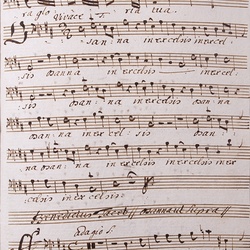 ria glo ria tua.
Vivace
O san na in excelsis in excel
sis osanna in excelsis in excel
sis osan na in excelsis
osan na in excel sis osan
na osan na in excelsis in ex
celsis in excelsis
Benedictus tacet osanna ut supra
Adagio